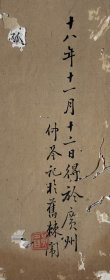 十八年十一月十二日得於廣州
仲冬記於舊棘闈